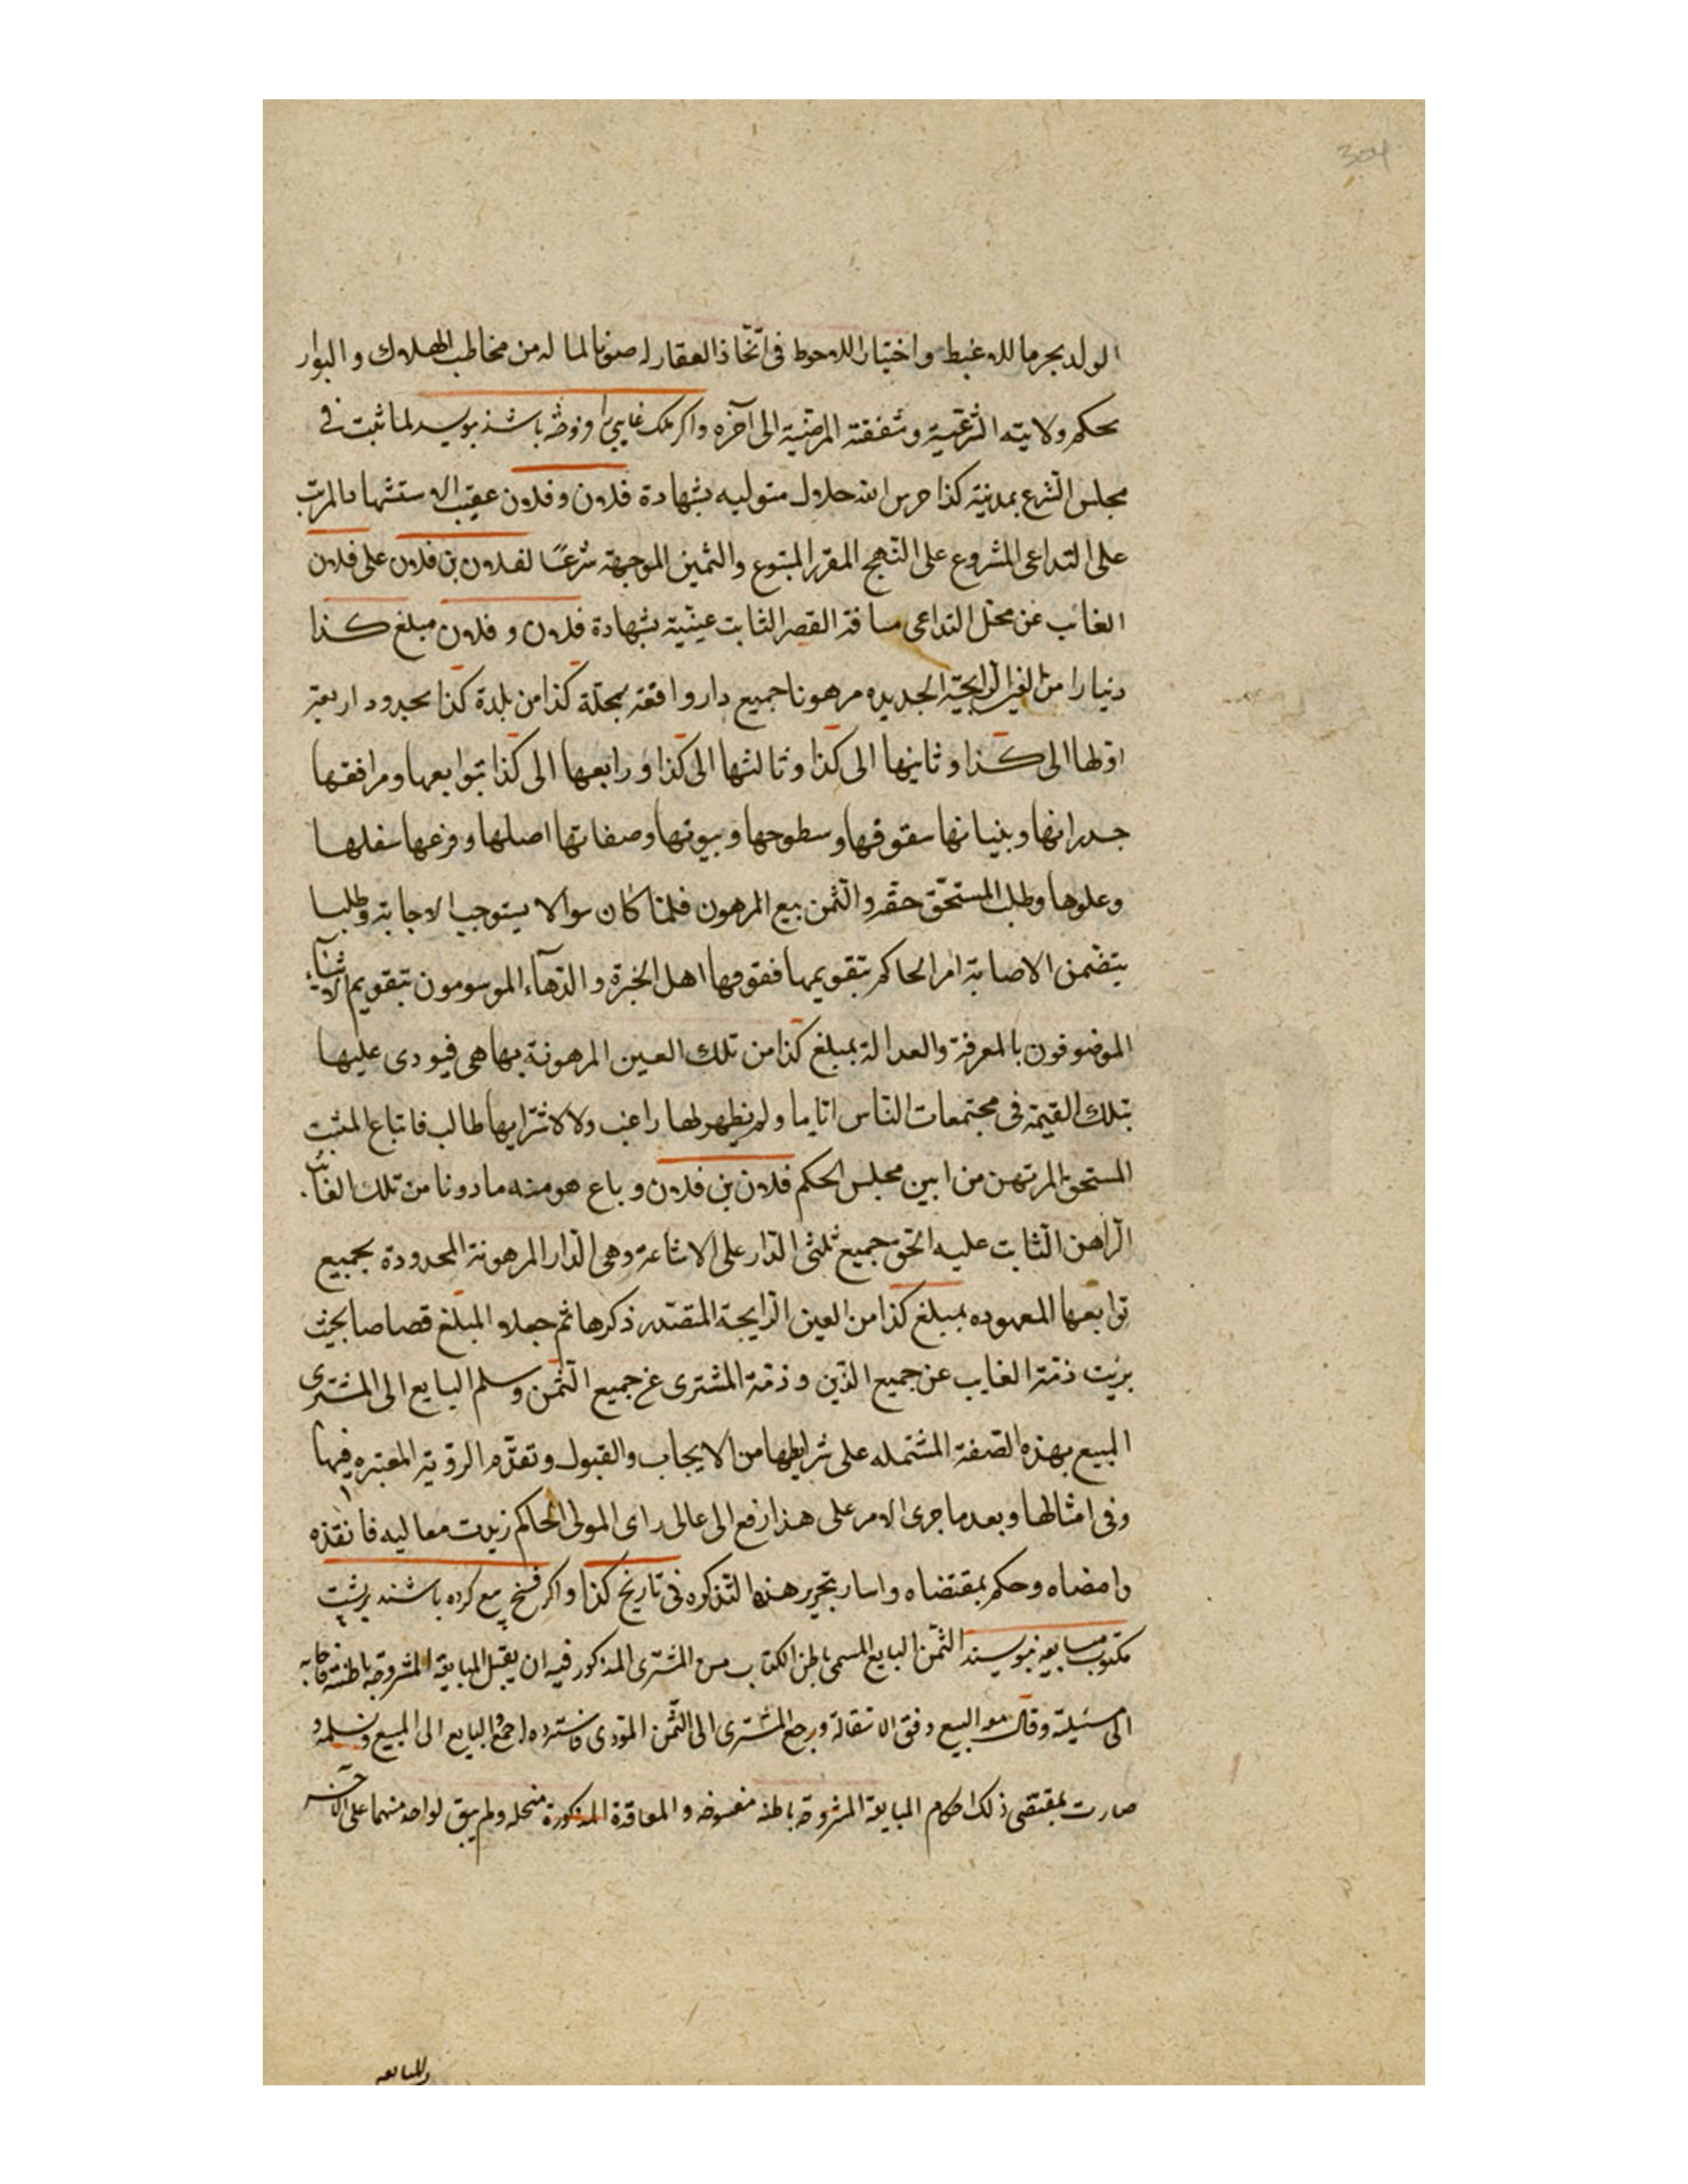 304
الولد بجرما للاغبط واختيار اللاحوط فی اتّخاذ العقار له صونا لماله من مخاطب الهلاك والبوار
بحكم ولايته الشرعيّة وشفقته المرضيّة الی آخره واكر ملك غايبی را فروخته باشند بنويسد لما ثبت فی
مجلس الشرع بمدينة كذا حرس الله جلال متوليه بشهادة فلان وفلان عقيب الاستشهاد المرتب
علی التداعی المشروع علی النّهج المقرر المتبوع والثمين الموجهة شرعًا لفلان بن فلان علی فلان
الغائب عن محل التداعی مسافة القصر الثابت غيبته بشهادة فلان و فلان مبلغ كذا
دينارا من العين الرايجيّة الجديده مرهونا جميع دار واقعة بمحلّة كذا من بلدة كذا بحدود اربعة
اوّلها الی كذا وثانيها الی كذا وثالثها الی كذا ورابعها الی كذا بتوابعها ومرافقها
جدرانها وبنيانها سقوفها وسطوحها وبيوتها وصفاتها اصلها وفرعها سفلها
وعلوها وطلب المستحقّ حقّه والثّمن بيع المرهون فلمّا كان سوالا يستوجب الاجابة وطلبا
يتضمن الاصابة امر الحاكم بتقويمها فقوّمها اهل الخبرة و الدّهآء الموسومون بتقويم الاشيآء
الموصوفون بالمعرفة والعدالة بمبلغ كذا من تلك العين المرهونة بها هی فيودی عليها
بتلك القيمة فی مجتمعات النّاس ايّاما ولم يظهر لها راغب ولا لاشترايها طالب فابتاع المثبت
المستحق المرتهن من ابين مجلس الحكم فلان بن فلان وباع هو منه ماذونا من تلك الغائب
الرّاهن الثّابت عليه الحّق جميع ثلثی الدّار علی الاشاعة وهی الدّار المرهونة المحدودة بجميع
توابعها المعهوده بمبلغ كذا من العين الرّايجة المتصدّر ذكرها ثم جعلا المبلغ قصاصا بحيث
بريت ذمّة الغايب عن جميع الدّين و ذمّة المشتری عن جميع الثّمن وسلم البايع الی المشتری
المبيع بهذه الصّفة المشتمله علی شرايطها من الايجاب والقبول وتقدّم الرؤية المعتبره فيها
وفی امثالها وبعد ما جری الامر علی هذا رفع الی عالی رای المولی الحاكم زيدت معاليه فانفذه
وامضاه وحكم بمقتضاه واسار بتحرير هذه التّذكره فی تاريخ كذا واكر فسخ بيع كرده باشند بر پشت
مكتوب مبايعه بنويسند الثّمن البايع المسمی باطن الكتاب من المشتری المذكور فيه ان يقبل المبايعة المشروحة باطنه فاجابه
الی مسئيلته وقال مو البيع وفق الاستقالة ورجع المشتری الی الثّمن المؤدی فاسترده اجمع والبايع الی المبيع وتسلمه و
صارت بمقتضی ذلك احكام المبايعة المشروحة باطنه مفسوخه والمعاقدة المذكورة منحله ولم يبق لواحد منهما علی الآخر
والمبايعه